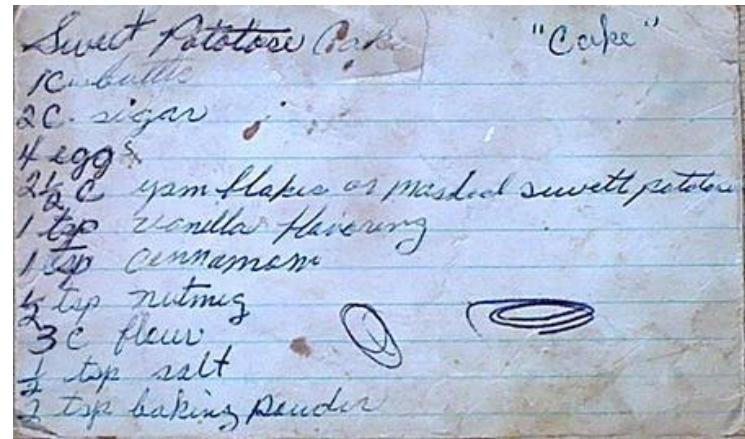 Sweet Pototose Cake "Cake"
1 C butter
2 C. sigar
4 eggs
2½ C yam flakes or mashed swett potatose
1 tsp vanella flavoring
1 tsp cennamom
½ tsp nutmeg
3 C flour
½ tsp salt
2 tsp baking pouder